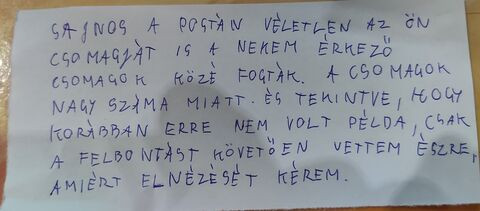 SAJNOS A POSTÁN VÉLETLEN AZ ÖN
CSOMAGJÁT IS A NEKEM ÉRKEZŐ
CSOMAGOK KÖZÉ FOGTÁK. A CSOMAGOK
NAGY SZÁMA MIATT. ÉS TEKINTVE, HOGY
KORÁBBAN ERRE NEM VOLT PÉLDA, CSAK
A FELBONTÁST KÖVETŐEN VETTEM ÉSZRE,
AMIÉRT ELNÉZÉSÉT KÉREM.